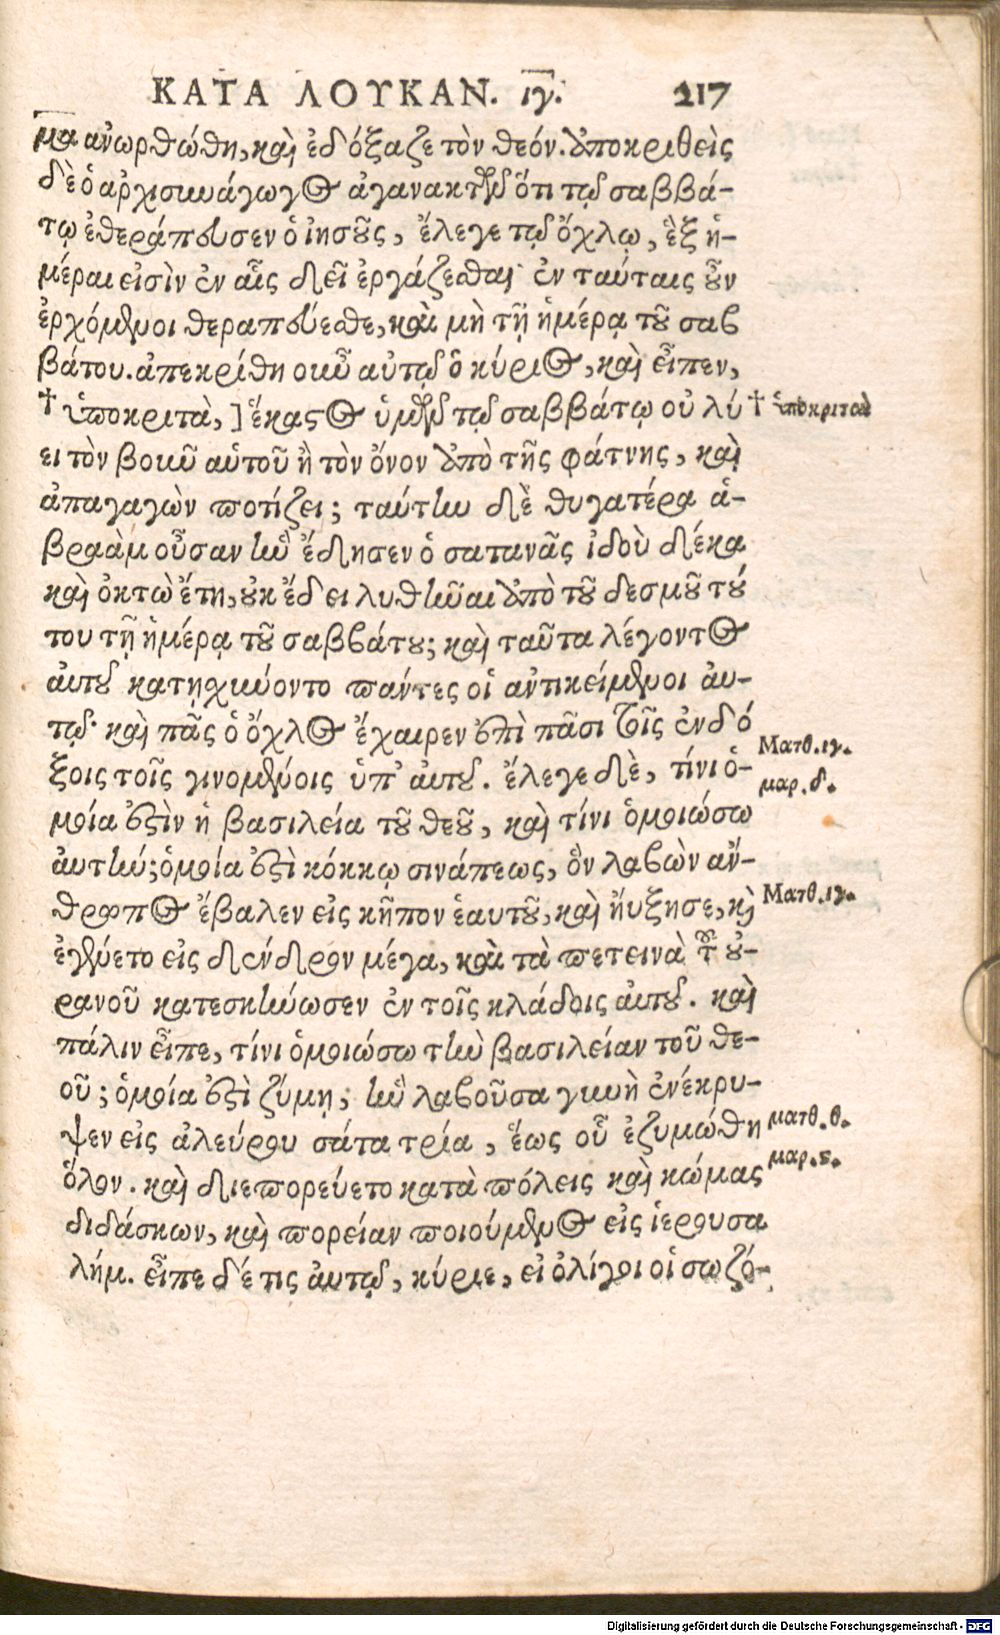 ΚΑΤΑ ΛΟΥΚΑΝ. ιγ. 217
μα ἀνωρθώθη, καὶ ἐδόξαζε τὸν θεόν. ἀποκριθεὶς
δὲ ὁ ἀρχισυνάγωγος ἀγανακτῶν ὅτι τῷ σαββά-
τῳ ἐθεράπευσεν ὁ ἰησοῦς, ἔλεγε τῷ ὄχλῳ, ἓξ ἡ-
μέραι εἰσὶν ἐν αἷς δεῖ ἐργάζεσθαι· ἐν ταύταις οὖν
ἐρχόμενοι θεραπεύεσθε, καὶ μὴ τῇ ἡμέρᾳ τοῦ σαβ
βάτου. ἀπεκρίθη οὖν αὐτῷ ὁ κύριος, καὶ εἶπεν,
† ὑποκριτὰ, ] ἕκαστος ὑμῶν τῷ σαββάτῳ οὐ λύ † ὑποκριταὶ
ει τὸν βοῦν αὑτοῦ ἢ τὸν ὄνον ἀπὸ τῆς φάτνης, καὶ
ἀπαγαγὼν ποτίζει; ταύτην δὲ θυγατέρα ἀ-
βραὰμ οὖσαν ἣν ἔδησεν ὁ σατανᾶς ἰδοὺ δέκα
καὶ ὀκτὼ ἔτη, οὐκ ἔδει λυθῆναι ἀπὸ τοῦ δεσμοῦ τού
του τῇ ἡμέρᾳ τοῦ σαββάτου; καὶ ταῦτα λέγοντος
αὐτοῦ κατῃσχύνοντο πάντες οἱ ἀντικείμενοι αὐ-
τῷ· καὶ πᾶς ὁ ὄχλος ἔχαιρεν ἐπὶ πᾶσι τοῖς ἐνδό
ξοις τοῖς γινομένοις ὑπ' αὐτοῦ. ἔλεγε δὲ, τίνι ὁ-
Ματθ. ιγ.
μαρ. δ.
μοία ἐστὶν ἡ βασιλεία τοῦ θεοῦ, καὶ τίνι ὁμοιώσω
αὐτήν; ὁμοία ἐστὶ κόκκῳ σινάπεως, ὃν λαβὼν ἄν-
θρωπος ἔβαλεν εἰς κῆπον ἑαυτοῦ, καὶ ηὔξησε, καὶ Ματθ. ιγ.
ἐγένετο εἰς δένδρον μέγα, καὶ τὰ πετεινὰ τοῦ οὐ-
ρανοῦ κατεσκήνωσεν ἐν τοῖς κλάδοις αὐτοῦ. καὶ
πάλιν εἶπε, τίνι ὁμοιώσω τὴν βασιλείαν τοῦ θε-
οῦ; ὁμοία ἐστὶ ζύμῃ, ἣν λαβοῦσα γυνὴ ἐνέκρυ-
ψεν εἰς ἀλεύρου σάτα τρία, ἕως οὗ ἐζυμώθη ματθ. θ.
μαρ. ϛ.
ὅλον. καὶ διεπορεύετο κατὰ πόλεις καὶ κώμας
διδάσκων, καὶ πορείαν ποιούμενος εἰς ἱερουσα
λήμ. εἶπε δέ τις αὐτῷ, κύριε, εἰ ὀλίγοι οἱ σωζό-
Digitalisierung gefördert durch die Deutsche Forschungsgemeinschaft - DFG